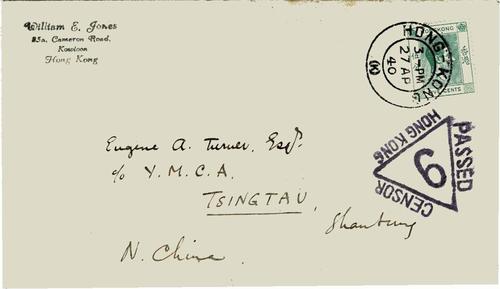 William E. Jones
25a, Cameron Road,
Kowloon
Hong Kong
HONG KONG
3 - PM
27 AP
40
HONG KONG
CENTS
Eugene A. Turner, Esq.
c/o Y.M.C.A.
TSINGTAU,
Shantung
N. China
PASSED
CENSOR
HONG KONG
9